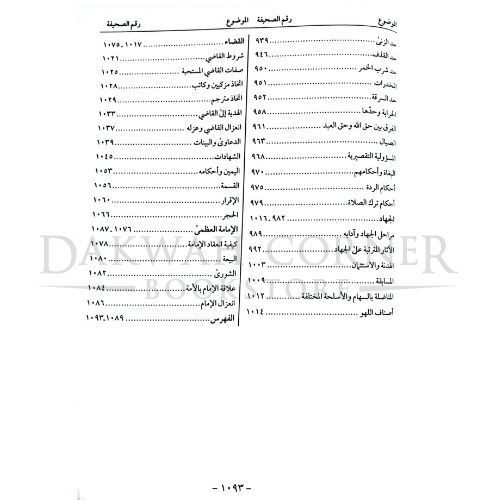 الموضوع رقم الصحيفة
حد الزنىٰ ٩٣٩
حد القذف ٩٤٦
حد شرب الخمر ٩٥٠
المخدرات ٩٥١
حد السرقة ٩٥٢
الحرابة وحدّها ٩٥٨
الفرق بين حق الله وحق العبد ٩٦١
الصيال ٩٦٣
المسؤولية التقصيرية ٩٦٨
البغاة وأحكامهم ٩٧٠
أحكام الردة ٩٧٥
أحكام ترك الصلاة ٩٧٩
الجهاد ٩٨٢ـ١٠١٦
مراحل الجهاد وآدابه ٩٨٩
الآثار المترتبة علىٰ الجهاد ٩٩٢
الهدنة والاستئمان ١٠٠٣
المسابقة ١٠٠٩
المناضلة بالسهام والأسلحة المختلفة ١٠١٢
أصناف اللهو ١٠١٤
الموضوع رقم الصحيفة
القضاء ١٠١٧ـ١٠٧٥
شروط القاضي ١٠٢١
صفات القاضي المستحبة ١٠٢٥
اتخاذ مزكيين وكاتب ١٠٢٨
اتخاذ مترجم ١٠٢٩
الهدية إلىٰ القاضي ١٠٣٣
انعزال القاضي وعزله ١٠٣٧
الدعاوىٰ والبينات ١٠٣٩
الشهادات ١٠٤٥
اليمين وأحكامه ١٠٥٣
القسمة ١٠٥٦
الإقرار ١٠٦٠
الحجر ١٠٦٦
الإمامة العظمىٰ ١٠٧٦ـ١٠٨٧
كيفية انعقاد الإمامة ١٠٧٨
البيعة ١٠٨٠
الشورىٰ ١٠٨٢
علاقة الإمام بالأمة ١٠٨٤
انعزال الإمام ١٠٨٦
الفهرس ١٠٨٩ـ١٠٩٣
DAKWAH CORNER
BOOKSTORE
- ١٠٩٣ -